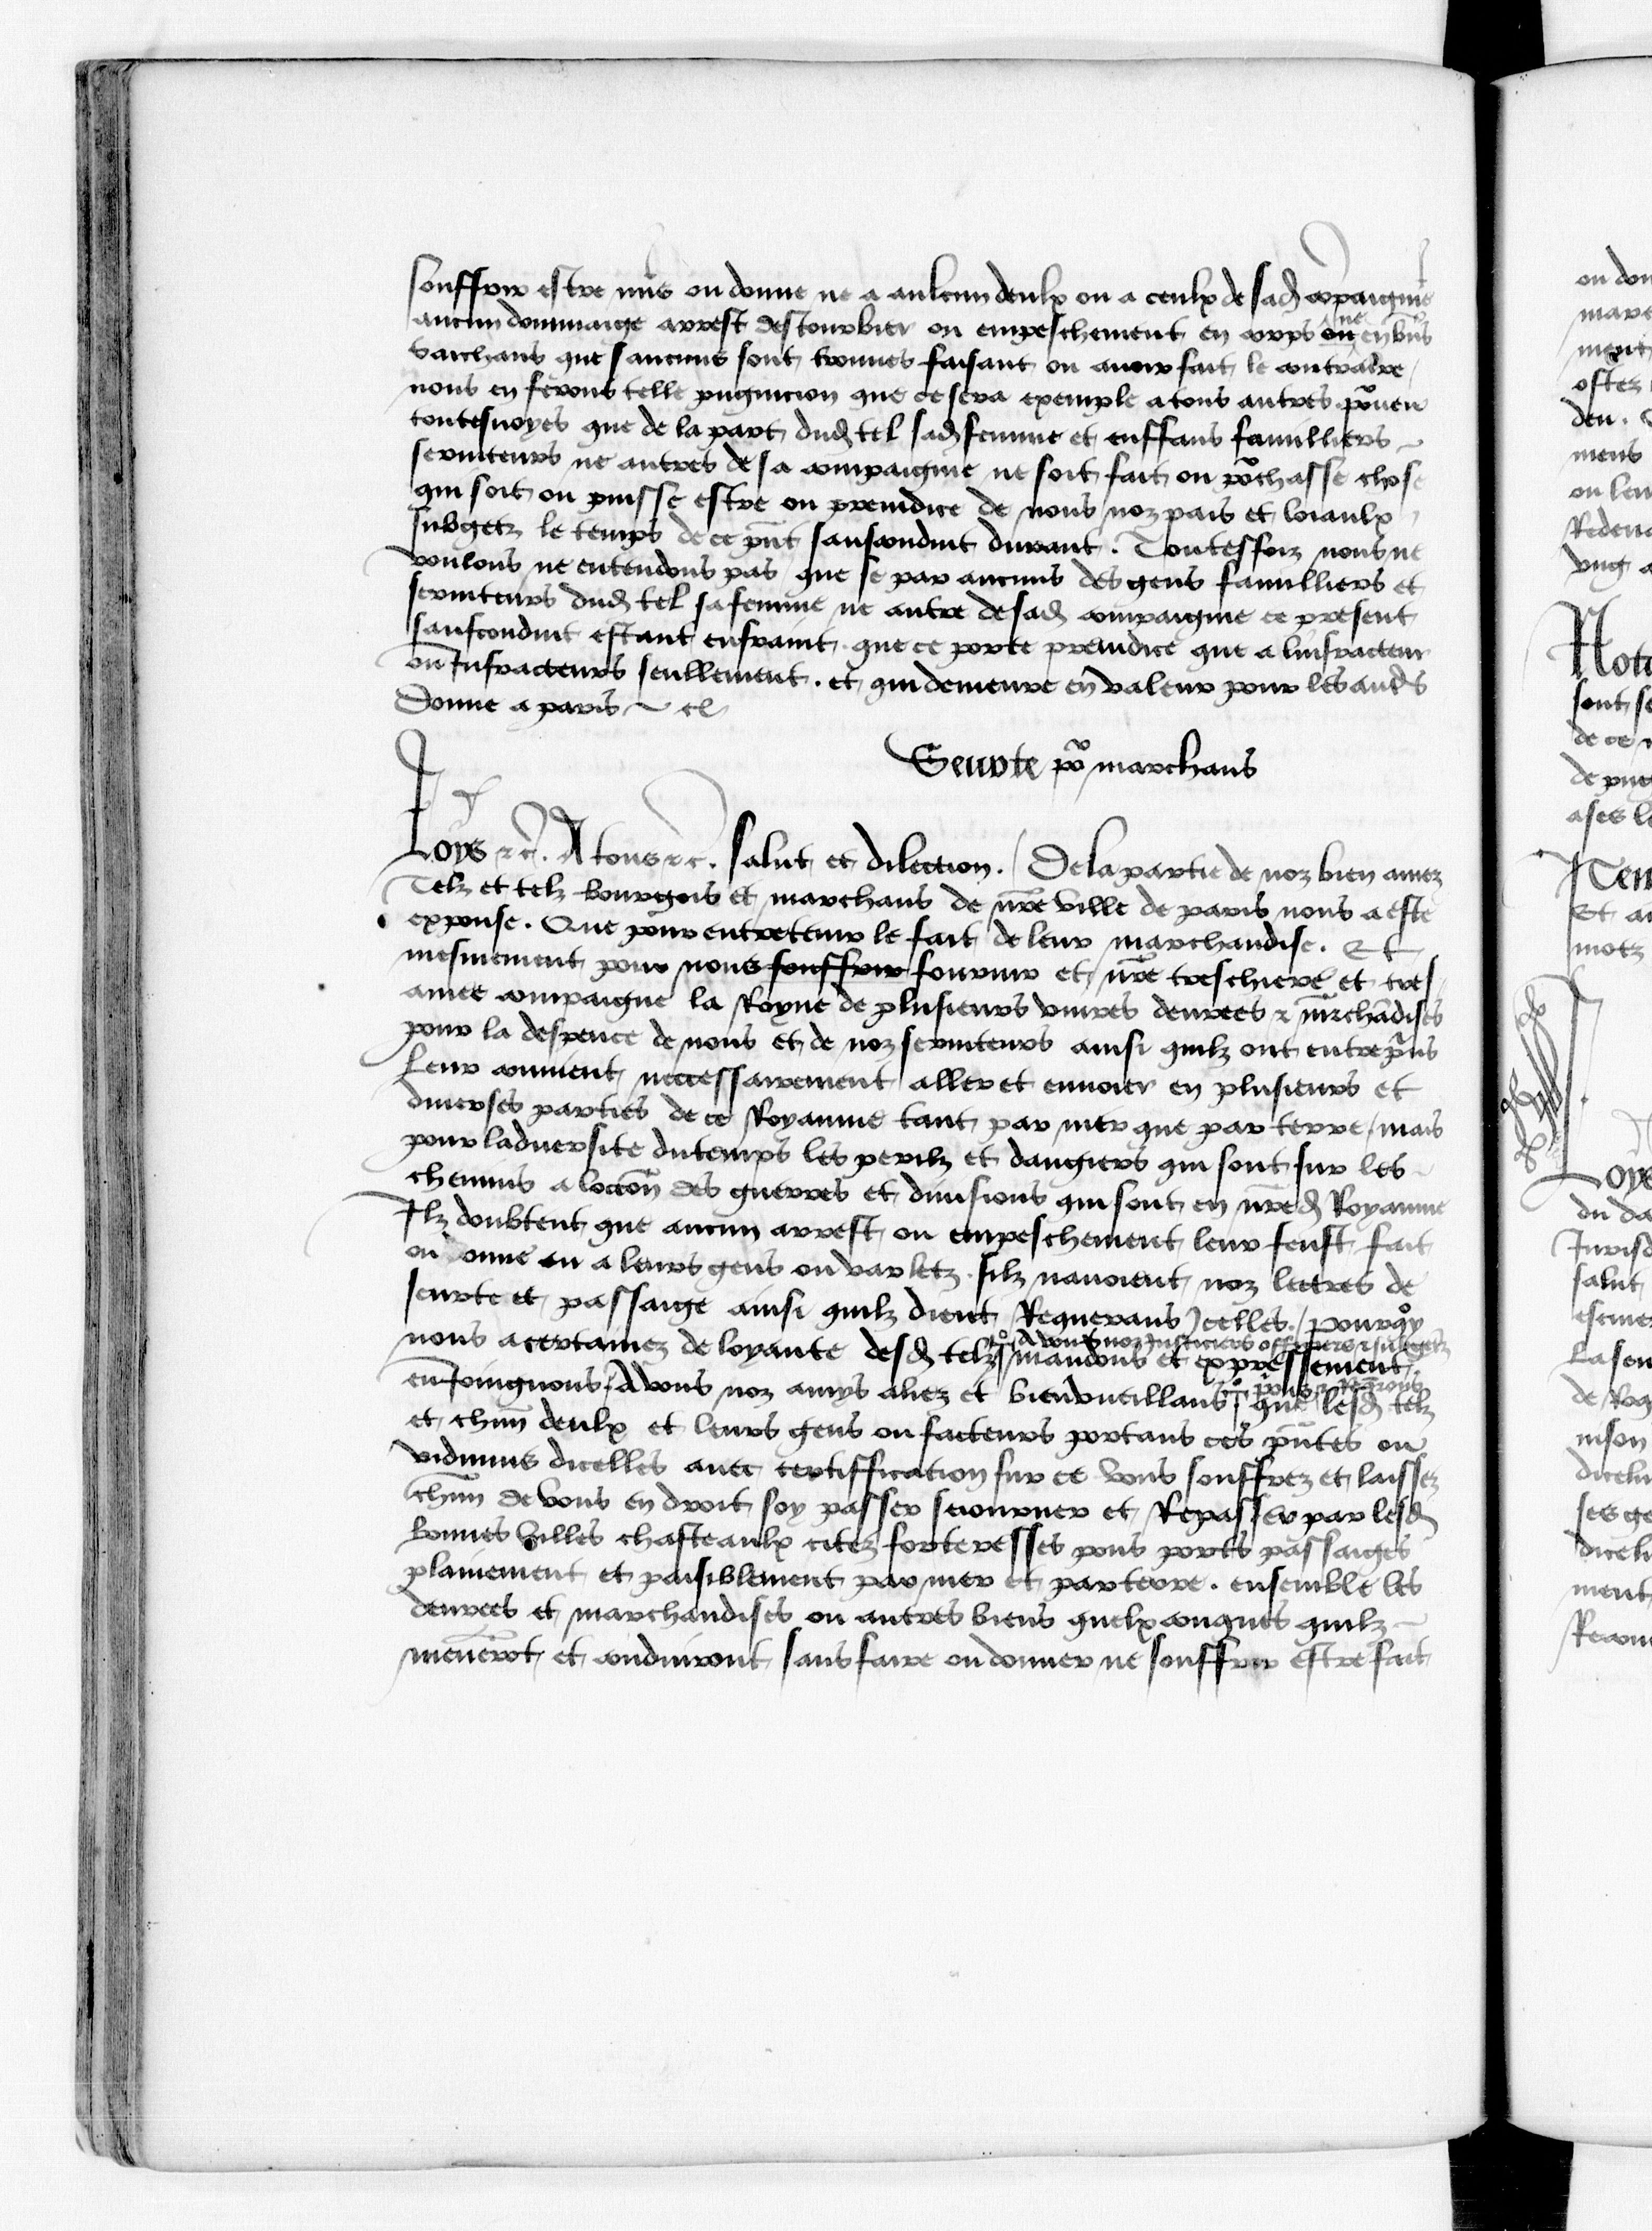 souffrir estre mis ou donne ne a aulcun deulx ou a ceulx de sad compaignie
aucun dommaige arrest destourbier ou empeschement en corps ou ne en biens
Saichans que saucuns sont trouues faisant ou auoir fait le contraire
nous en ferons telle pugnicion que ce sera exemple a tous autres pourueu
toutesuoyes que de la part dud tel sad femme et enffans familliers
seruiteurs ne autres de sa compaignie ne soit fait ou pourchasse chose
qui soit ou puisse estre ou preiudice de nous noz pais et loiaulx
subgetz le temps de ce pnt saufconduit durant. Toutesfoiz nous ne
voulons ne entendons pas que se par aucuns des gens familliers et
seruiteurs dud tel sa femme ne autre de sad compaignie ce present
saufconduit estant enfraint que ce porte preiudice que a linfracteur
ou Infracteurs seullement. et qui demeure en valeur pour les autres
Donne a paris etc
Seurte por marchans
Loys etc. A tous etc. salut et dilection. De la partie de noz bien amez
Telz et telz bourgois et marchans de nre ville de paris nous a este
expouse. Que pour entretenir le fait de leur marchandise. Et
mesmement pour nous souffrir fournir et nre treschiere et tres
amee compaigne la Royne de plusieurs viures denrees et marchandises
pour la despence de nous et de noz seruiteurs ainsi quilz ont entreprins
Leur conuient necessairement aller et enuoier en plusieurs et
diuerses parties de ce Royaume tant par mer que par terre / mais
pour laduersite du temps les perilz et dangiers qui sont sur les
chemins a loccon des guerres et diuisions qui sont en nred Royaume
Ilz doubtent que aucun arrest ou empeschement leur feust fait
ou donne ou a leurs gens ou varletz silz nauoient noz lectres de
seurte et passaige ainsi quilz dient Requerans Icelles. / Pourquoy
nous acertainez de loyaute desd telz mandons et expressement
A vous noz Justiciers officiers et subgetz
enJoingnons / A vous noz amys aliez et bienvueillans que lesd telz
prions Requerons
et chun deulx et leurs gens ou facteurs portans ces pntes ou
vidimus dicelles auec certiffication sur ce vous souffrez et laissez
chun de vous en droit soy passer seiourner et Repasser par lesd
bonnes villes chasteaulx citez forteresses pons ports passaiges
plainement et paisiblement par mer et par terre. ensemble les
denrees et marchandises ou autres biens quelxconques quilz
meneront et conduiront sans faire ou donner ne souffrir estre fait